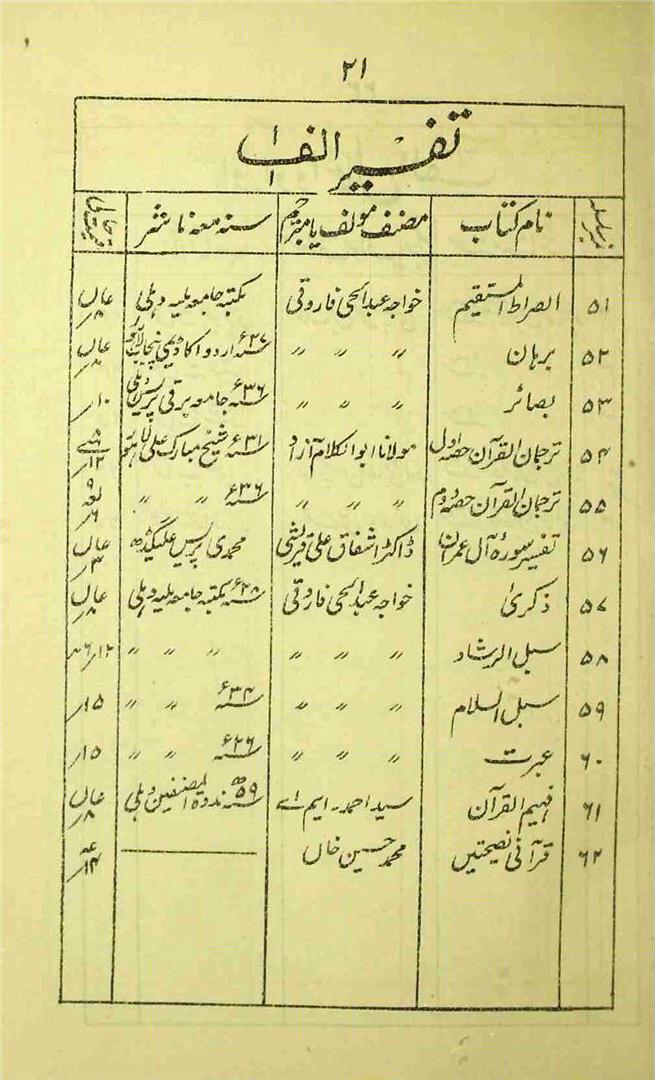 ۲۱
تفسیر الف ۱
نمبر سلسلہ نام کتاب مصنف مولف یا مترجم سنہ معہ ناشر
۵۱ الصراط المستقیم خواجہ عبدالحی فاروقی مکتبہ جامعہ ملیہ دہلی
۵۲ برہان " " " سنہ ۲۷ء اردو اکاڈیمی پنجاب لاہور
۵۳ بصائر " " " سنہ ۳۶ء جامعہ برقی پریس دہلی ۱۰/
۵۴ ترجمان القرآن حصہ اول مولانا ابوالکلام آزاد سنہ ۳۱ء شیخ مبارک علی لاہور
۵۵ ترجمان القرآن حصہ دوم " " " سنہ ۳۶ء " "
۵۶ تفسیر سورۂ آل عمران ڈاکٹر اشفاق علی قریشی محمدی پریس علیگڈھ
۵۷ ذکریٰ خواجہ عبدالحی فاروقی سنہ ۲۸ء مکتبہ جامعہ ملیہ دہلی
۵۸ سبل الرشاد " " " " " " "
۵۹ سبل السلام " " " سنہ ۳۴ء " " ۱۵/
۶۰ عبرت " " " سنہ ۲۶ء " " ۱۵/
۶۱ فہیم القرآن سید احمد۔ ایم اے سنہ ۵۹ھ ندوۃ المصنفین دہلی
۶۲ قرآنی نصیحتیں محمد حسین خاں